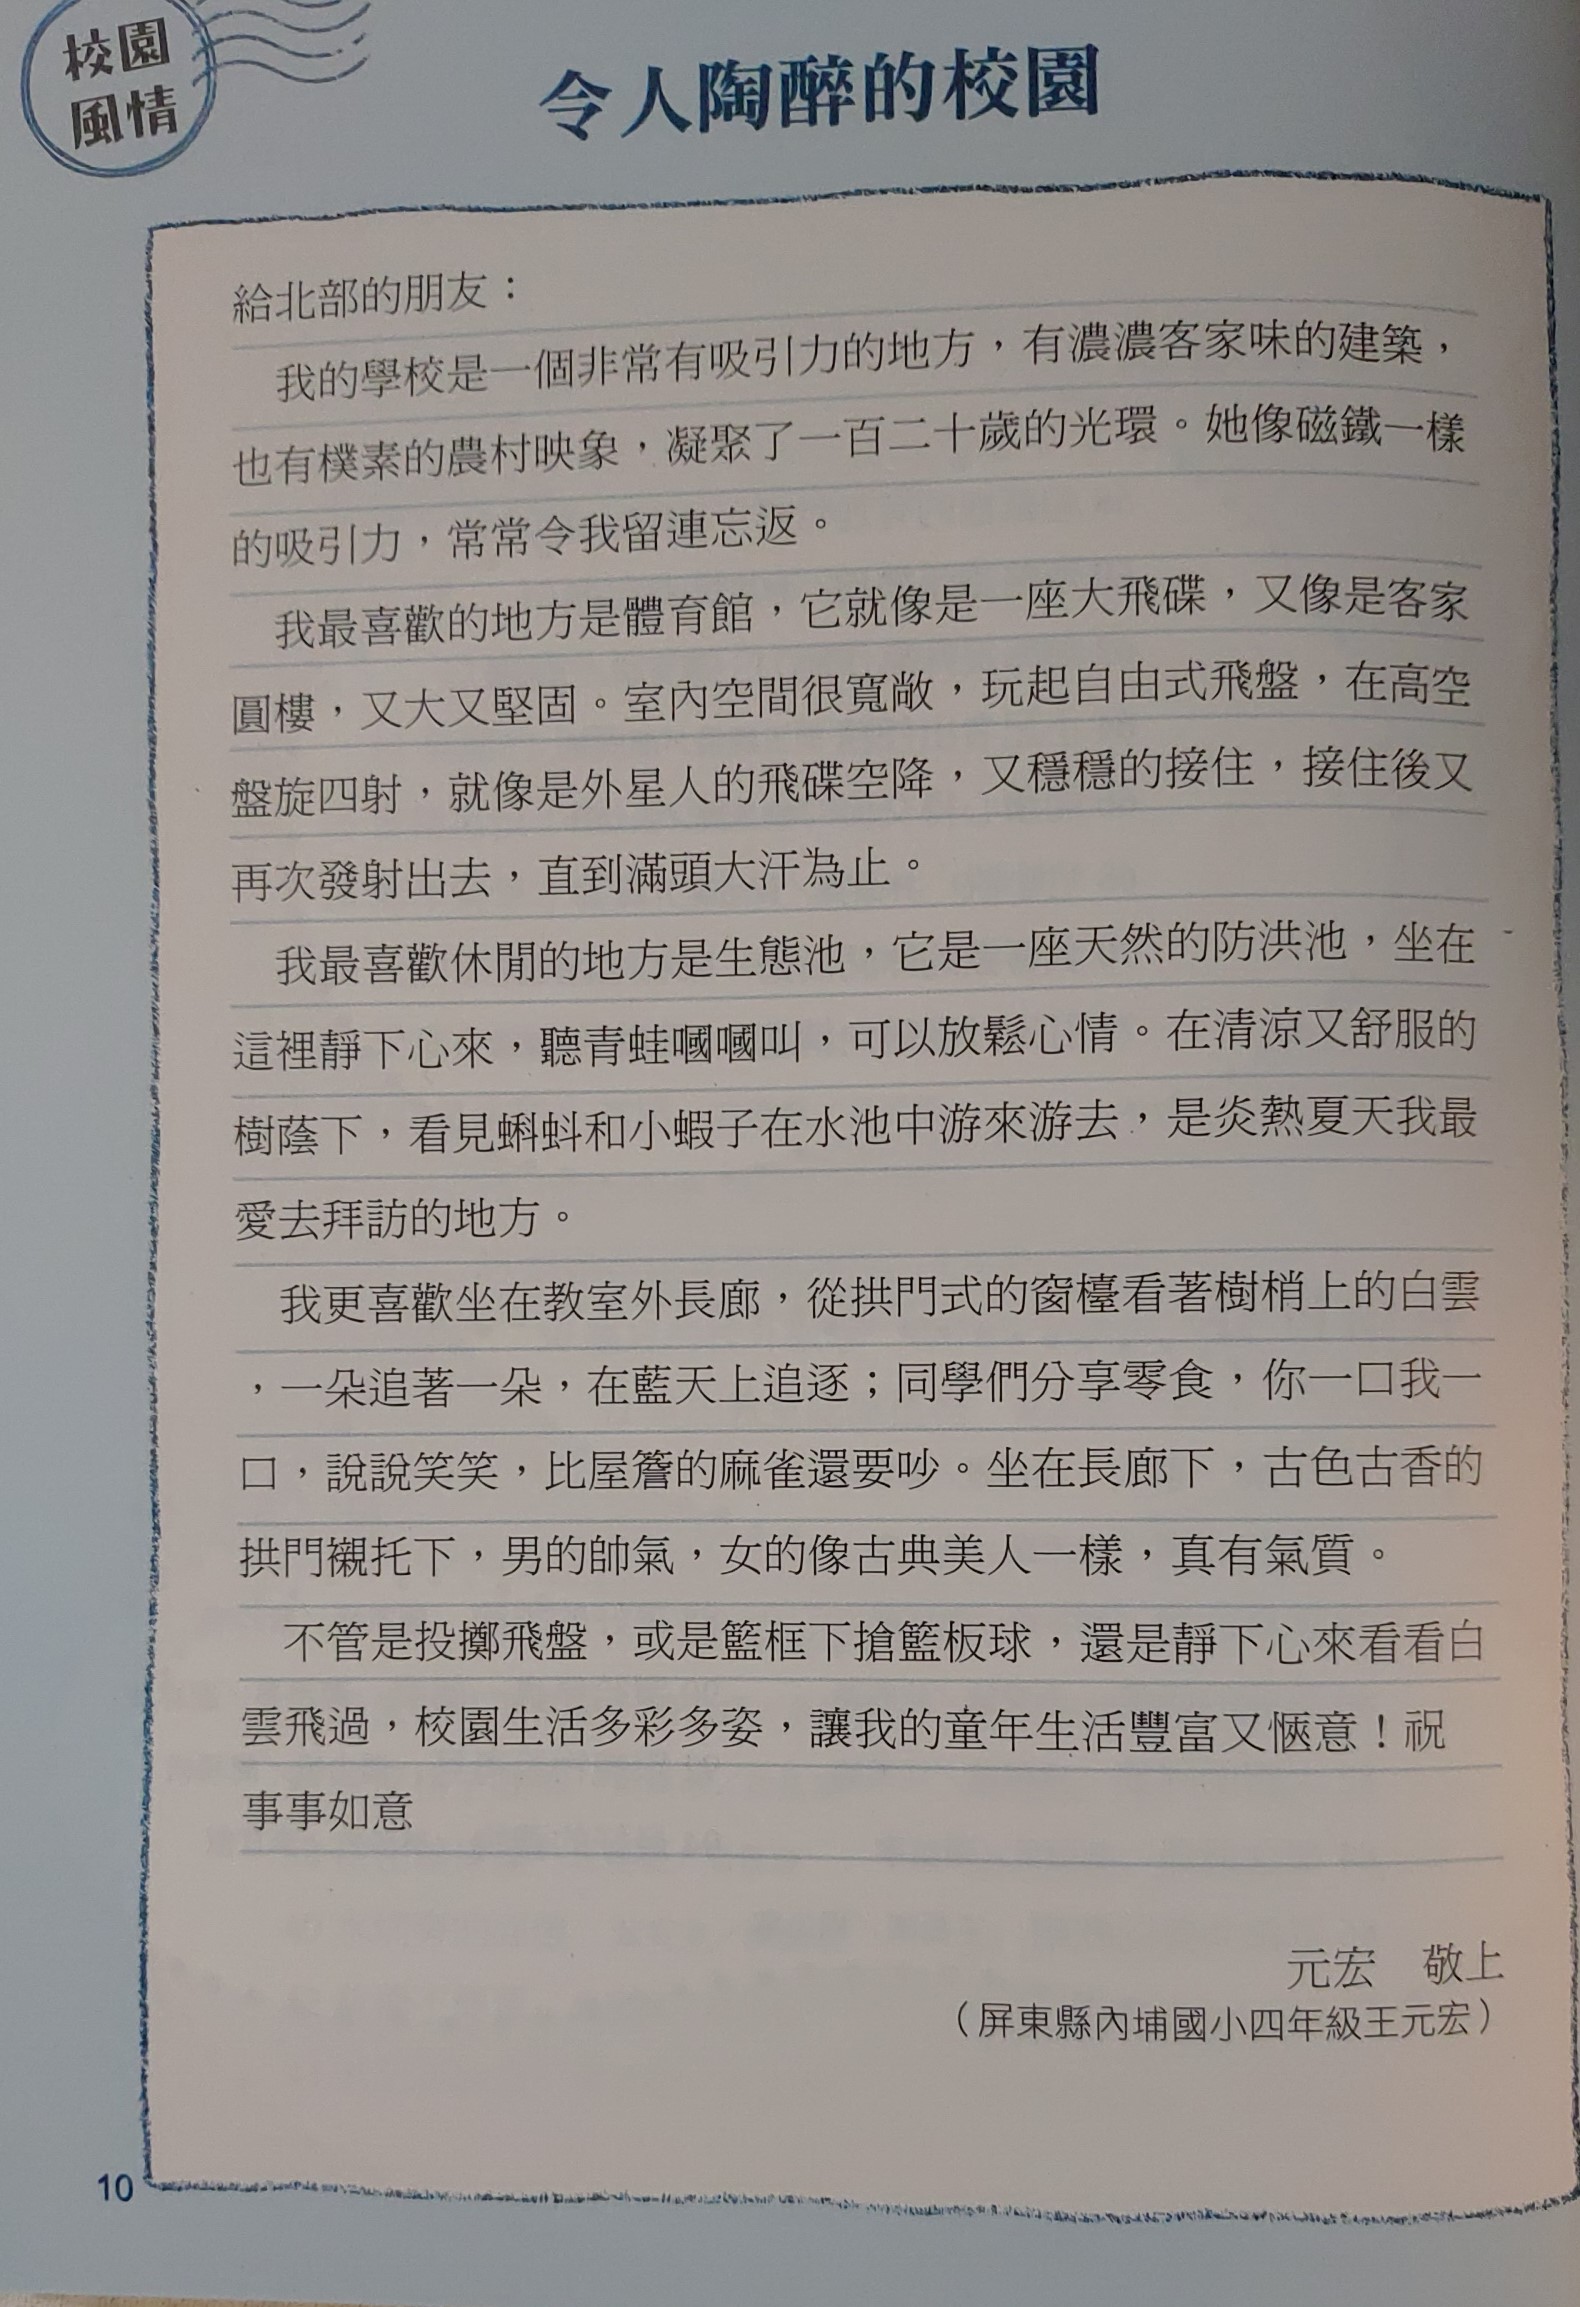 校園
風情
令人陶醉的校園
給北部的朋友：
我的學校是一個非常有吸引力的地方，有濃濃客家味的建築，
也有樸素的農村映象，凝聚了一百二十歲的光環。她像磁鐵一樣
的吸引力，常常令我留連忘返。
我最喜歡的地方是體育館，它就像是一座大飛碟，又像是客家
圓樓，又大又堅固。室內空間很寬敞，玩起自由式飛盤，在高空
盤旋四射，就像是外星人的飛碟空降，又穩穩的接住，接住後又
再次發射出去，直到滿頭大汗為止。
我最喜歡休閒的地方是生態池，它是一座天然的防洪池，坐在
這裡靜下心來，聽青蛙嘓嘓叫，可以放鬆心情。在清涼又舒服的
樹蔭下，看見蝌蚪和小蝦子在水池中游來游去，是炎熱夏天我最
愛去拜訪的地方。
我更喜歡坐在教室外長廊，從拱門式的窗檯看著樹梢上的白雲
，一朵追著一朵，在藍天上追逐；同學們分享零食，你一口我一
口，說說笑笑，比屋簷的麻雀還要吵。坐在長廊下，古色古香的
拱門襯托下，男的帥氣，女的像古典美人一樣，真有氣質。
不管是投擲飛盤，或是籃框下搶籃板球，還是靜下心來看看白
雲飛過，校園生活多彩多姿，讓我的童年生活豐富又愜意！祝
事事如意
元宏　敬上
（屏東縣內埔國小四年級王元宏）
10